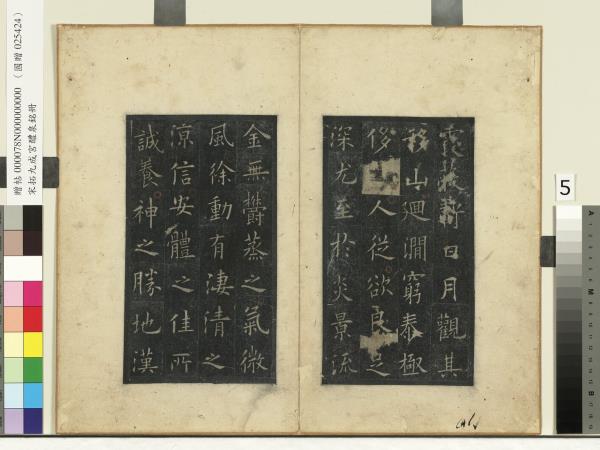 霞蔽虧日月觀其
移山廻澗窮泰極
侈人從欲良足
深尤至於炎景流
金無欝蒸之氣微
風徐動有淒清之
涼信安體之佳所
誠養神之勝地漢
贈帖 000078N000000000 （國贈 025424）
宋拓九成宮醴泉銘冊
5